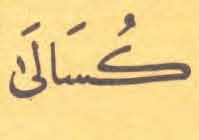 كُسَالَىٰ